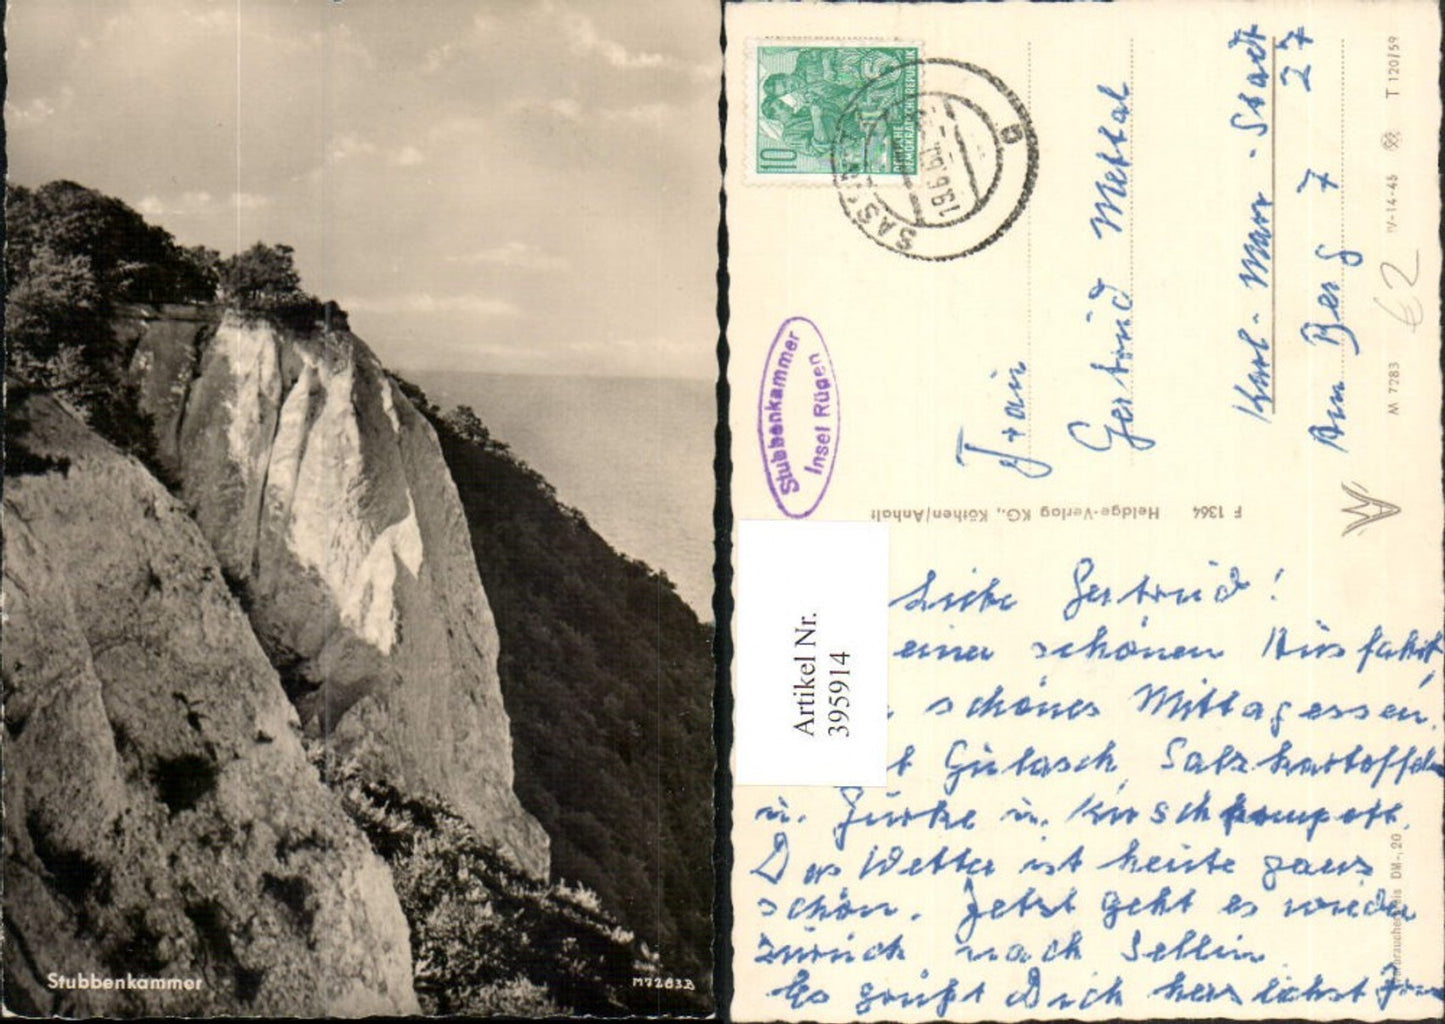 Stubbenkammer
M7283B
10
DEUTSCHE
DEMOKRATISCHE REPUBLIK
19.6.61
Stubbenkammer
Insel Rügen
Frau
Gertrud Mettal
Karl-Marx-Stadt
Am Berg 7 27
F 1364 Heldge-Verlag KG., Köthen/Anhalt
M 7283 IV-14-45 T 120/59
€2
Artikel Nr.
395914
Liebe Gertrud!
einen schönen Ausfahrt
schönes Mittagessen.
Gulasch, Salzkartoffeln
u. Gurke u. Kirschkompott.
Das Wetter ist heute ganz
schön. Jetzt geht es wieder
zurück nach Sellin.
Es grüßt Dich herzlichst
DM -,20